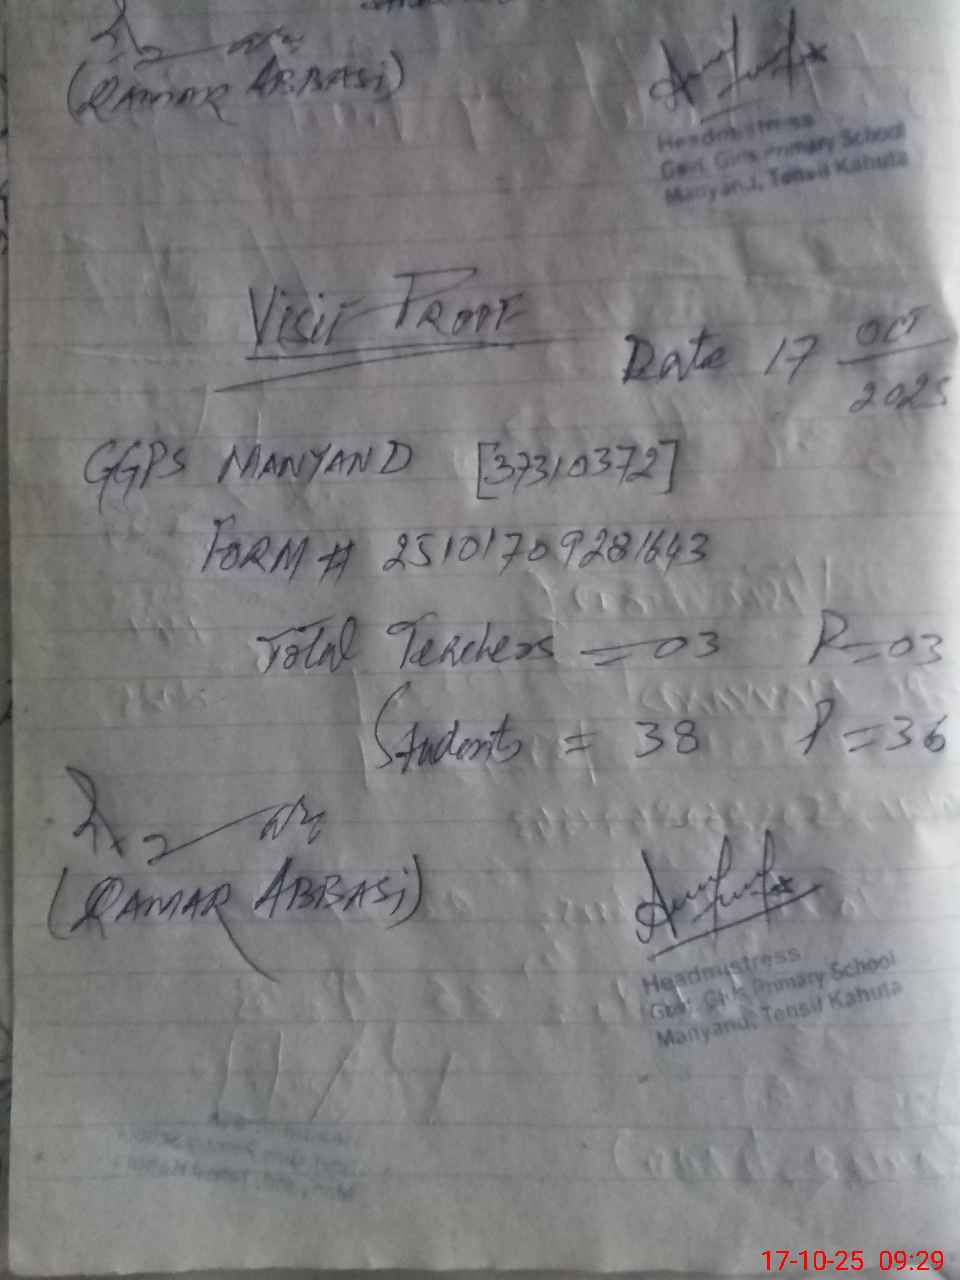 (QAMAR ABBASI)
Headmistress
Govt. Girls Primary School
Manyand, Tehsil Kahuta
Visit Proof
Date 17 Oct
2025
GGPS MANYAND [37310372]
FORM # 25101709281643
Total Teachers = 03 P=03
Students = 38 P=36
(QAMAR ABBASI)
Headmistress
Govt. Girls Primary School
Manyand, Tehsil Kahuta
17-10-25 09:29